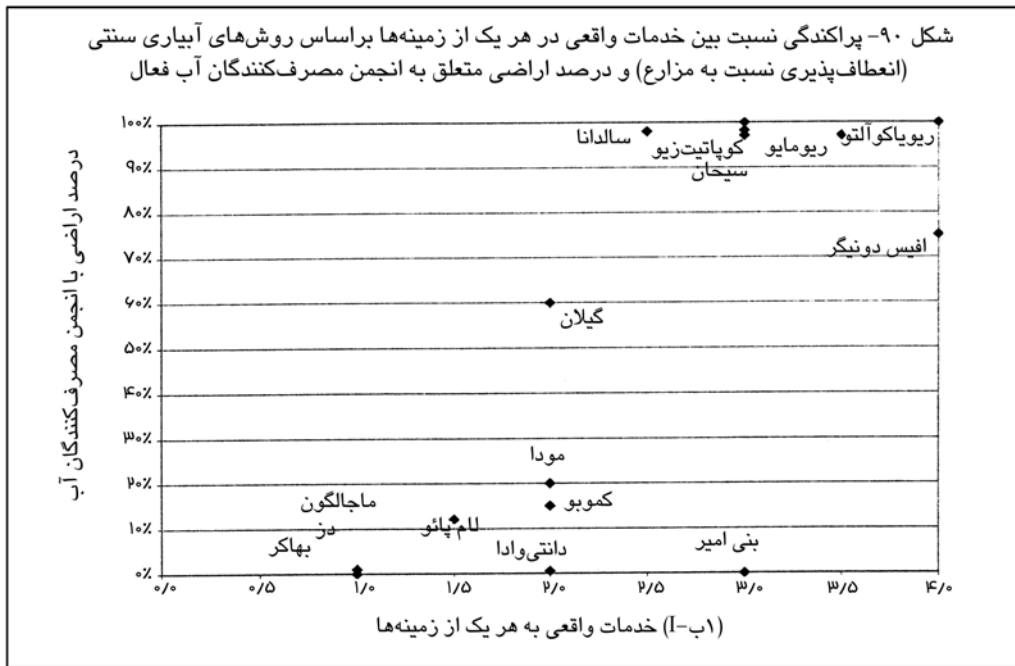 شکل ۹۰- پراکندگی نسبت بین خدمات واقعی در هر یک از زمینه‌ها براساس روش‌های آبیاری سنتی
(انعطاف‌پذیری نسبت به مزارع) و درصد اراضی متعلق به انجمن مصرف‌کنندگان آب فعال
درصد اراضی با انجمن مصرف‌کنندگان آب
۱۰۰٪
۹۰٪
۸۰٪
۷۰٪
۶۰٪
۵۰٪
۴۰٪
۳۰٪
۲۰٪
۱۰٪
۰٪
ریویاکوآلتو
ریومایو
کوپاتیت‌زیو
سالدانا
سیحان
افیس دونیگر
گیلان
مودا
کموبو
ماجالگون
لام‌پائو
دز
بهاکر
دانتی‌وادا
بنی امیر
۰/۰ ۰/۵ ۱/۰ ۱/۵ ۲/۰ ۲/۵ ۳/۰ ۳/۵ ۴/۰
(۱ب-I) خدمات واقعی به هر یک از زمینه‌ها